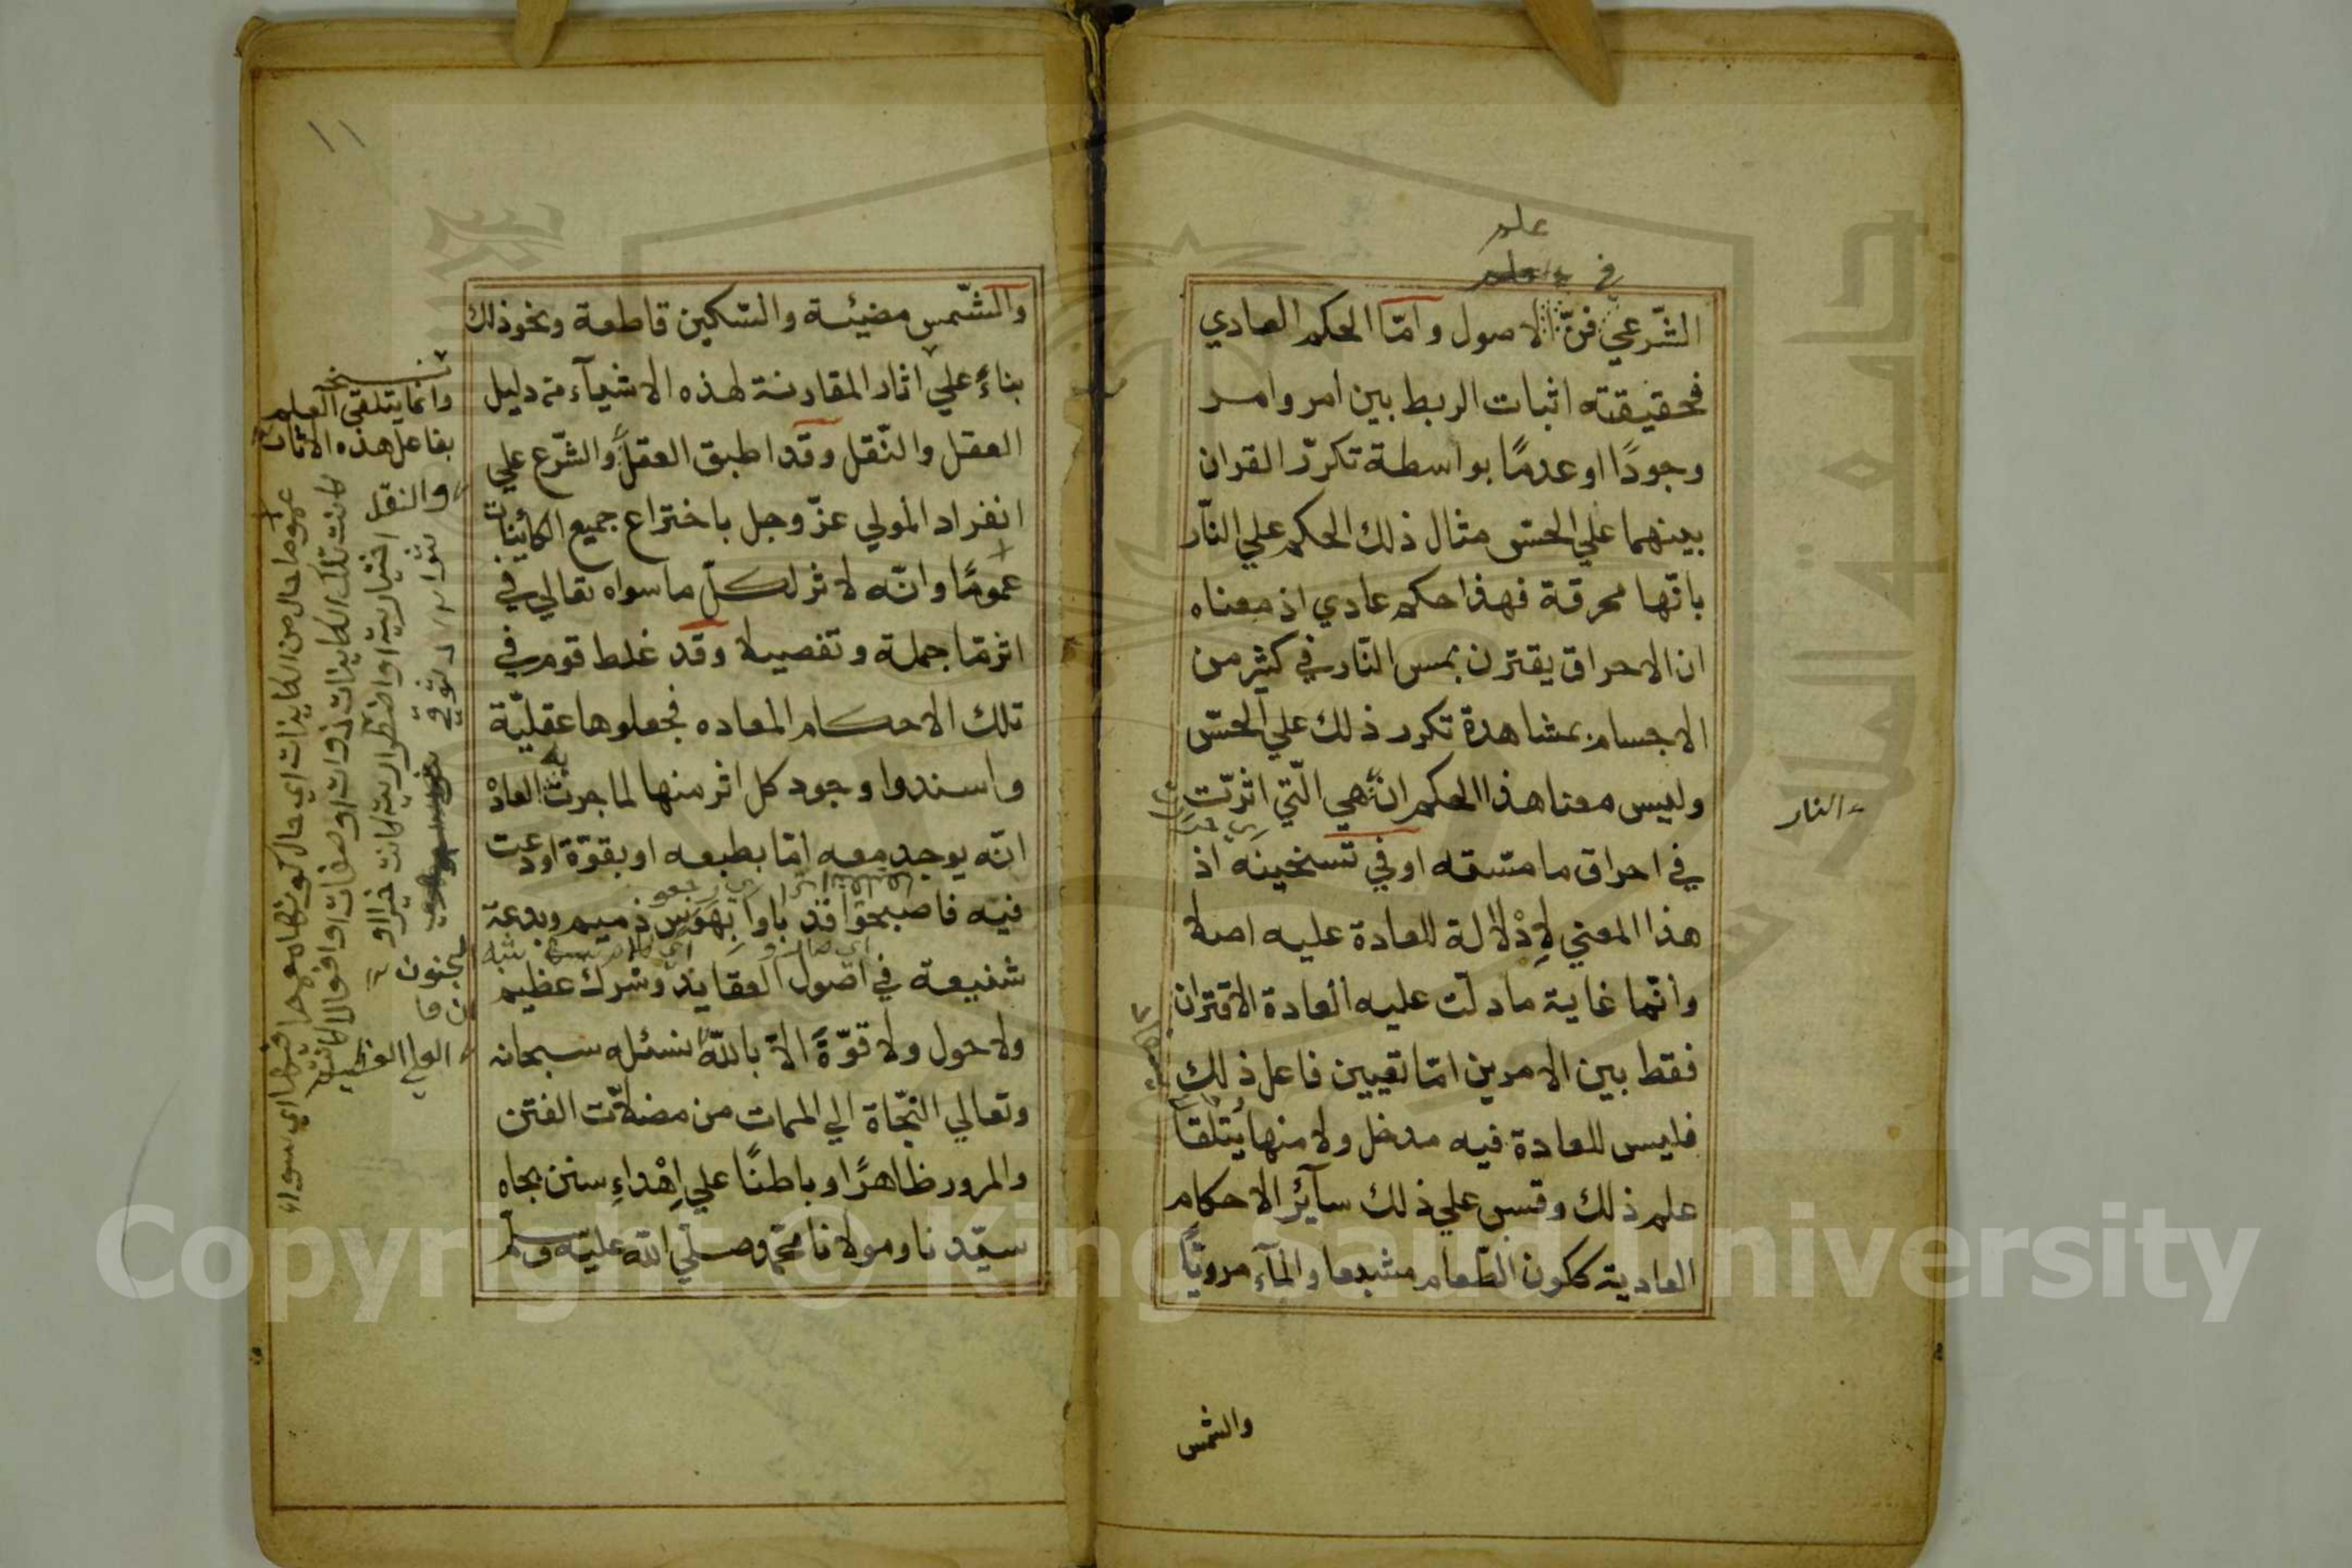 علم
في
الشّرعي فنّ الاصول وامّا الحكم العادي
فحقيقته اثبات الربط بين امر وامر
وجودًا او عدمًا بواسطة تكرّر القران
بينهما علي الحسّ مثال ذلك الحكم علي النّار
بانّها محرقة فهذا حكم عادي اذ معناه
ان الاحراق يقترن بمس النّار في كثير من
الاجسام بمشاهدة تكرر ذلك علي الحسّ
وليس معنا هذا الحكم انّ هي الّتي اثرّت
النار
في احراق ما مسّته او في تسخينه اذ
هذا المعني لا دْلالة للعادة عليه اصلا
وانّما غاية ما دلّت عليه العادة الاقتران
فقط بين الامرين امّا تعيين فاعل ذلك
فليس للعادة فيه مدخل ولا منها يُتلقا
علم ذلك وقس علي ذلك سآئر الاحكام
العادية ككون الطّعام مشبعا والمآء مرويًّا
والشمس
١١
والشّمس مضيئة والسّكين قاطعة ونحو ذلك
بناءً علي اثار المقارنة لهذه الاشيآء من دليل
العقل والنّقل وقد اطبق العقل والشّرع علي
انفراد المولي عزّ وجل باختراع جميع الكاينات
عمومًا وانّه لا ثر لكلّ ما سواه تعالي في
اثر مّا جملة وتفصيلا وقد غلط قوم في
تلك الاحكام المعاده فجعلوها عقليّة
واسندوا وجود كل اثر منها لما جرت العادْ
انّه يوجد معه امّا بطبعه او بقوّة اودعت
فيه فاصبحوا قد باوا بهوس ذميم وبدعة
شنيعة في اصول العقايد وشرك عظيم
ولا حول ولا قوّةً الاّ باللّه نسئله سبحانه
وتعالي النجّاة الي الممات من مضلاّت الفتن
والمرور ظاهرًا وباطنًا علي اِهْداءِ سنن بجاه
سيّدنا ومولانا محمّد صلّي اللّه عليه وسلم
وانما يتلقي العلم
بفاعل هذه الاثار
والنقل
عموما حال من الكاينات اي حال كونها معمما فيها اي سواء
كانت تلك الكاينات ذوات او صفات او افعالا كانت
اختيارية او اضطرارية كانت خيرا او